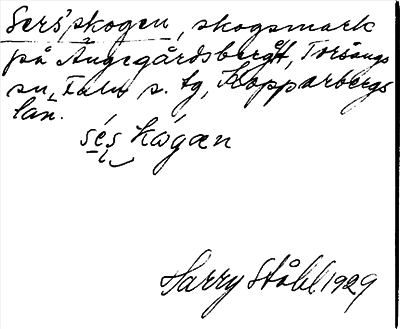 Sers'skogen, skogsmark
på Ångegårdsberget, Torsångs
sn, Falu s. tg, Kopparbergs
län.
sés kógæn
Harry Ståhl 1929